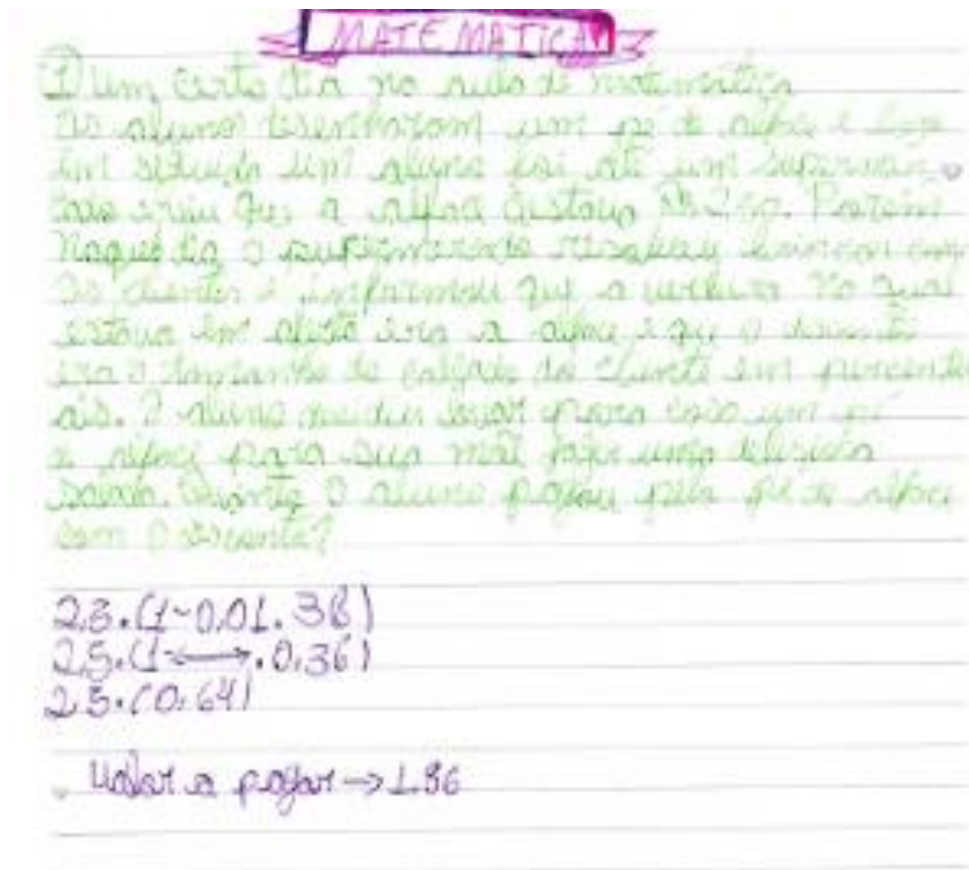 MATEMATICA
1) um certo dia na aula de matemática
os alunos desenharam um pé de alface e logo
em seguida um aluno foi até um supermer
que a alface custava Porém
naquele dia o supermercado resolveu brincar com
os clientes e informou que a verdura no qual
estava em oferta era a alface e que o desconto
era o tamanho do calçado do cliente em porcentu
ais. O aluno decidiu levar para casa um pé
de alface para sua mãe fazer uma deliciosa
salada. Quanto o aluno pagou pelo pé de alface
com o desconto?
2,5.(1-0,01.36)
2,5.(1 . 0,36)
2,5.(0,64)
Valor a pagar → 1.86